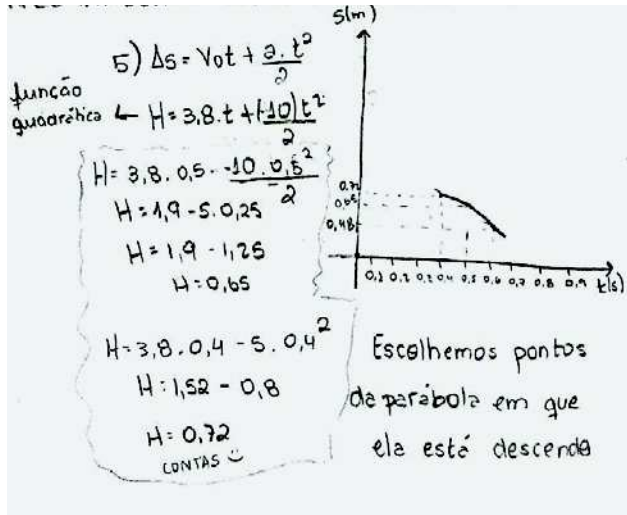 5) Δs = Vot + a.t²/2
função
quadrática ← H = 3,8.t + (-10)t²/2
H = 3,8 . 0,5 - -10 . 0,5²/2
H = 1,9 - 5. 0,25
H = 1,9 - 1,25
H = 0,65
H = 3,8 . 0,4 - 5 . 0,4²
H = 1,52 - 0,8
H = 0,72
CONTAS
S(m)
0,72
0,65
0,48
0,1 0,2 0,3 0,4 0,5 0,6 0,7 0,8 0,9 t(s)
Escolhemos pontos
da parábola em que
ela está descendo